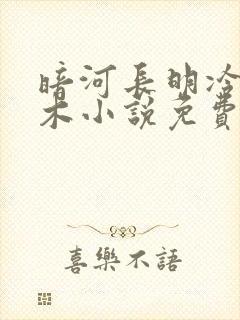 暗河長明冷
木小說免費
喜樂不語